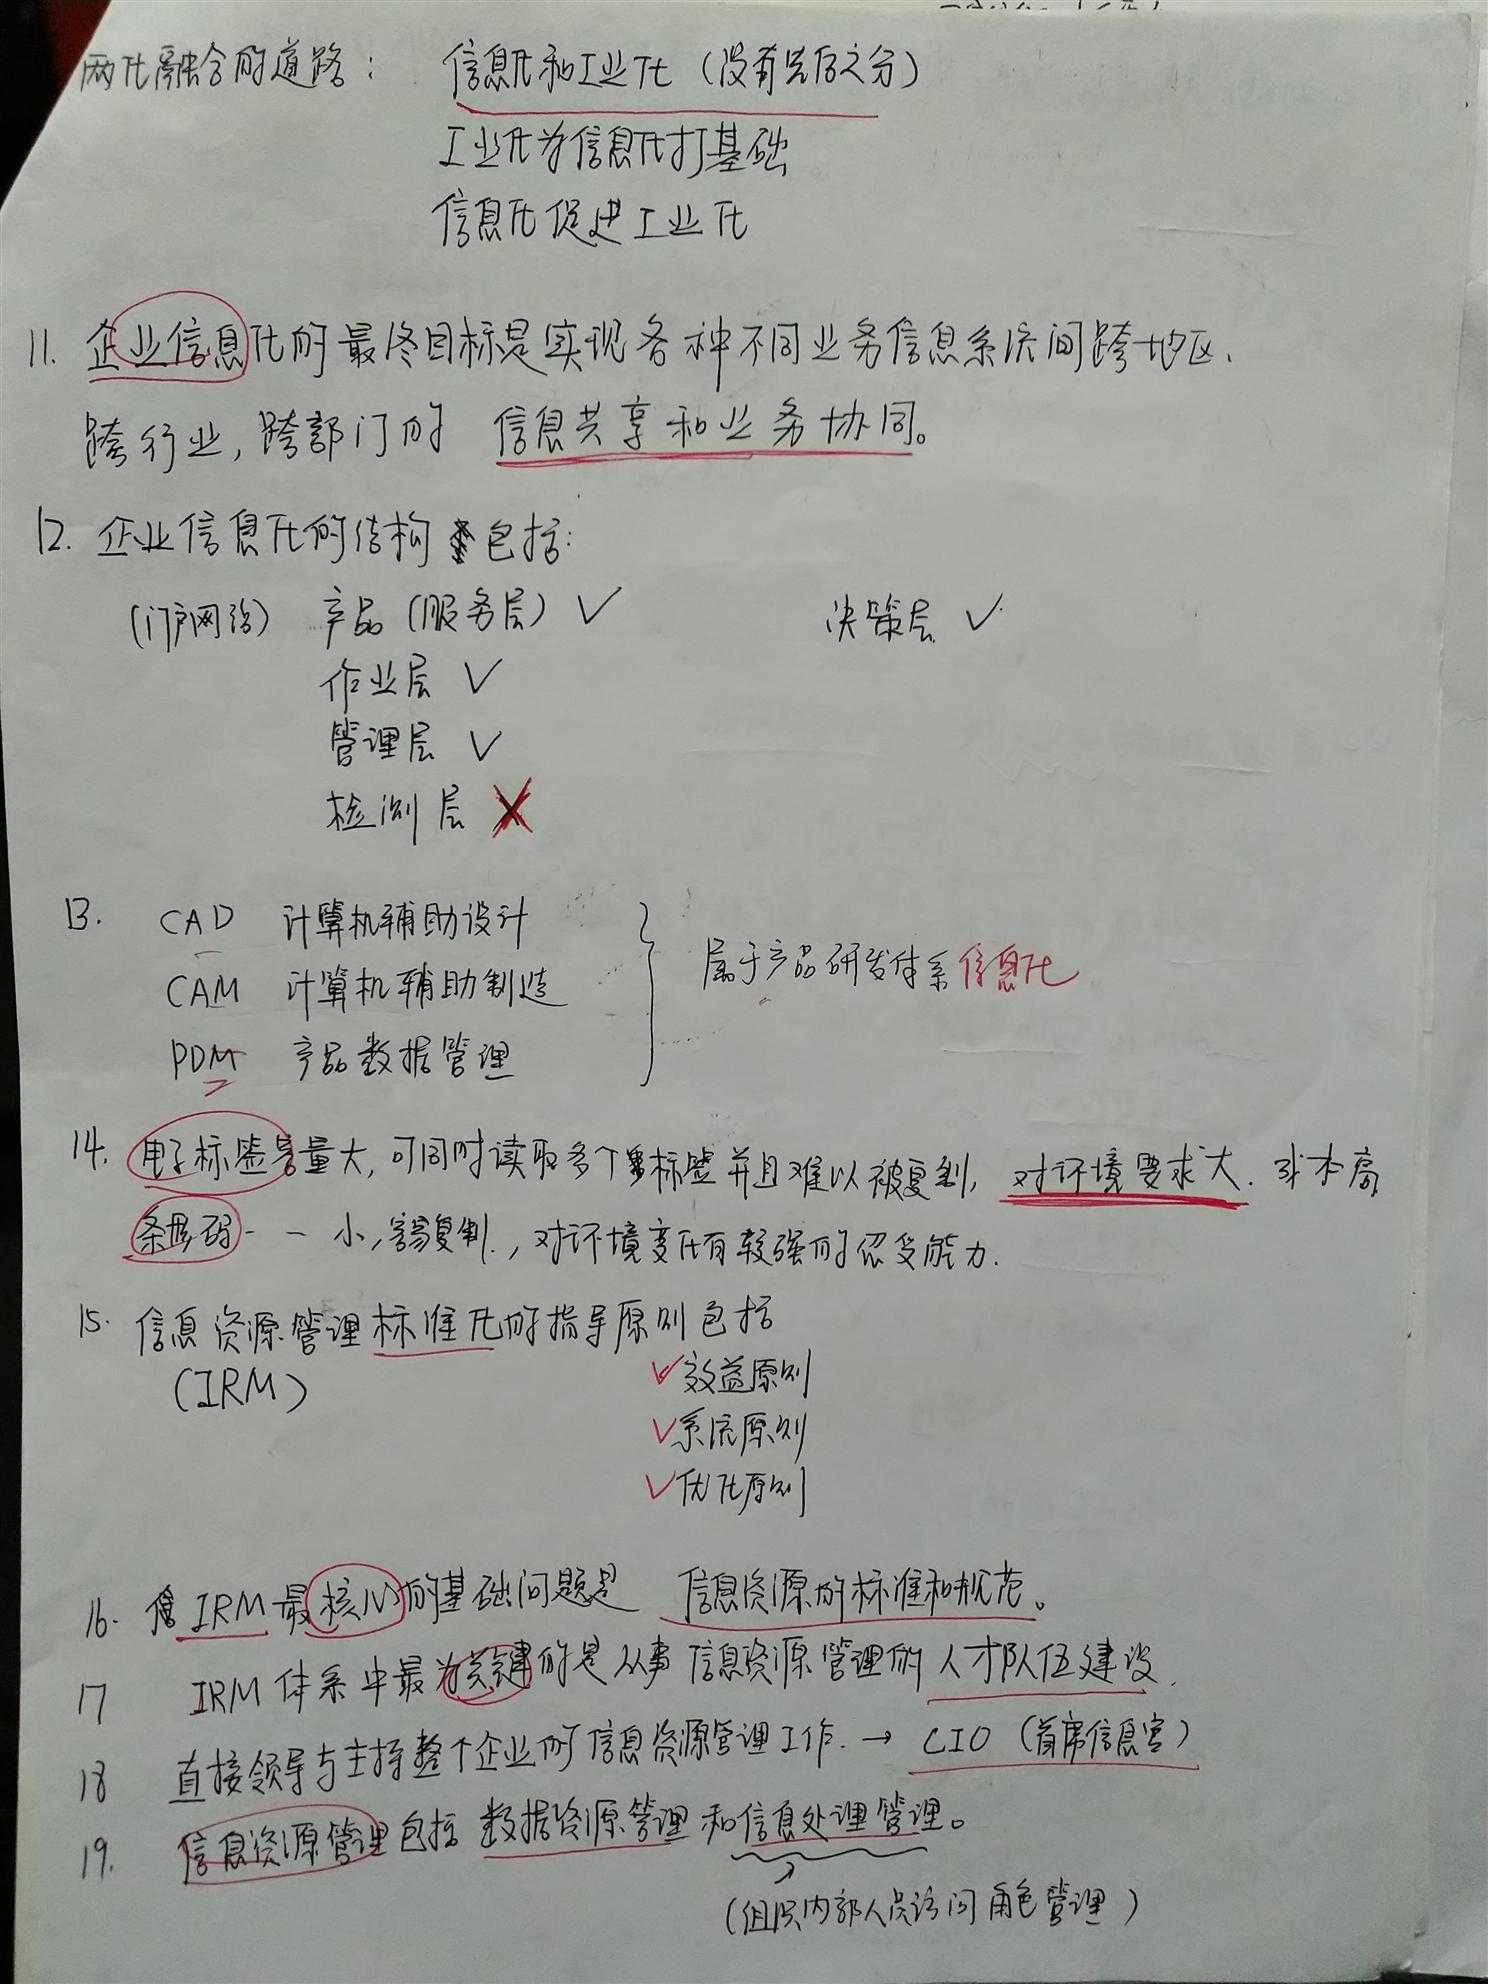 两化融合的道路： 信息化和工业化（没有先后之分）
工业化为信息化打基础
信息化促进工业化
11. 企业信息化的最终目标是实现各种不同业务信息系统间跨地区、
跨行业,跨部门的 信息共享和业务协同。
12. 企业信息化的结构 包括:
(门户网站) 产品(服务层) ✓ 决策层 ✓
作业层 ✓
管理层 ✓
检测层 ✗
13. CAD 计算机辅助设计
CAM 计算机辅助制造
属于产品研发体系信息化
PDM 产品数据管理
14. 电子标签容量大,可同时读取多个标签并且难以被复制, 对环境要求大. 成本高
条形码 - - 小,容易复制,对环境变化有较强的忍受能力.
15. 信息资源管理标准化的指导原则包括
(IRM) ✓效益原则
✓系统原则
✓优化原则
16. IRM最核心的基础问题是 信息资源的标准和规范。
17 IRM体系中最为关键的是从事信息资源管理的人才队伍建设.
18 直接领导与主持整个企业的信息资源管理工作. → CIO (首席信息官)
19. 信息资源管理包括 数据资源管理和信息处理管理。
(组织内部人员访问角色管理)